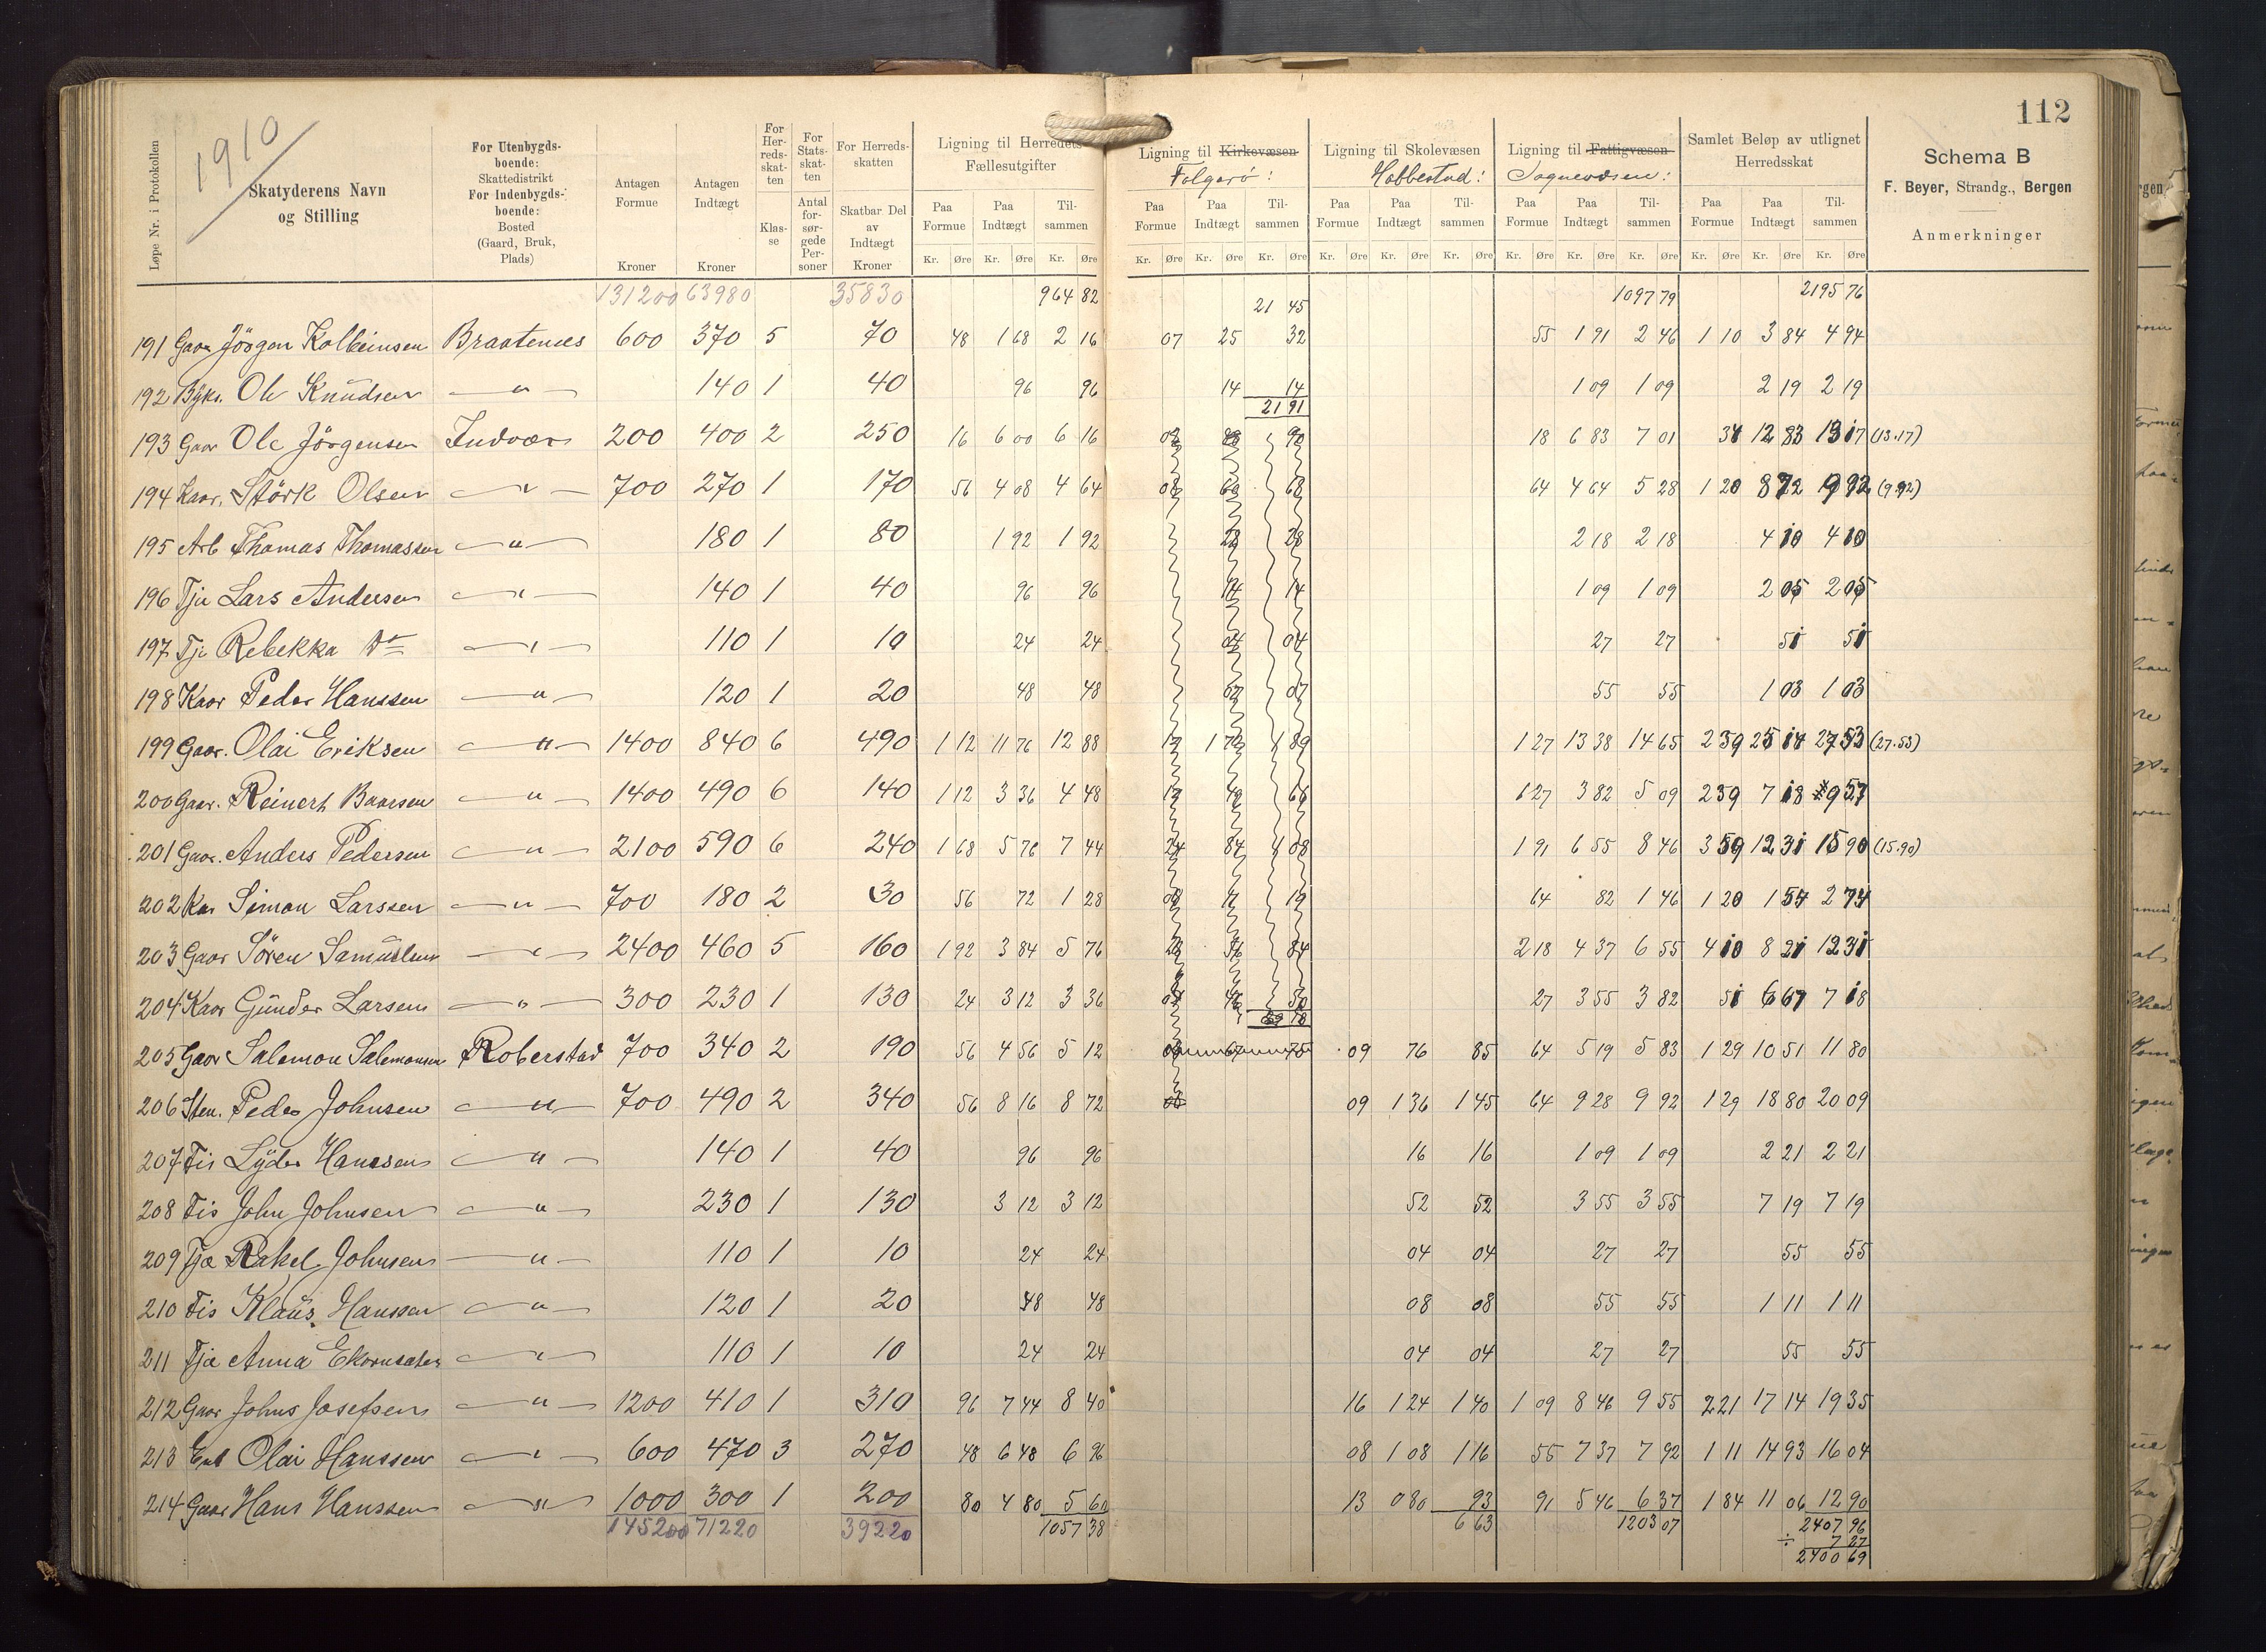 112
1910
Løpe Nr. i Protokollen
Skatyderens Navn og Stilling
For Utenbygds-boende: Skattedistrikt For Indenbygds-boende: Bosted (Gaard, Bruk, Plads)
Antagen Formue Kroner
Antagen Indtægt Kroner
For Herreds-skatten Klas-se
For Stats-skat-ten Antal for-sør-gede Per-soner
For Herreds-skatten Skatbar Del av Indtægt Kroner
Ligning til Herredets Fællesutgifter
Ligning til Kirkevæsen Folgerø:
Ligning til Skolevæsen Hobbestad:
Ligning til Fattigvæsen Sognevæsen:
Samlet Beløp av utlignet Herredsskat
Paa Formue Paa Indtægt Til-sammen
Kr. Øre Kr. Øre Kr. Øre
Schema B
F. Beyer, Strandg., Bergen
Anmerkninger
131200 63980 35830 964 82 21 45 1097 79 2195 76
191 Gaar Jörgen Kolbeinsen Braatenes 600 370 5 70 48 1 68 2 16 07 25 32 55 1 91 2 46 1 10 3 84 4 94
192 Ole Knudsen — " — 140 1 40 96 96 14 14 1 09 1 09 2 19 2 19
21 91
193 Gaar Ole Jörgensen Indvær 200 400 2 250 16 6 00 6 16 02 88 90 18 6 83 7 01 34 12 83 13 17 (13.17)
194 Kaar. Störk Olsen — " — 700 270 1 170 56 4 08 4 64 08 60 68 64 4 64 5 28 1 20 8 72 9 92 (9.92)
195 Arb Thomas Thomassen — " — 180 1 80 1 92 1 92 28 28 2 18 2 18 4 10 4 10
196 Tje Lars Andersen — " — 140 1 40 96 96 14 14 1 09 1 09 2 05 2 05
197 Tje Rebekka Do — " — 110 1 10 24 24 04 04 27 27 51 51
198 Kaar Peder Hanssen — " — 120 1 20 48 48 07 07 55 55 1 03 1 03
199 Gaar. Olai Eriksen — " — 1400 840 6 490 1 12 11 76 12 88 17 1 72 1 89 1 27 13 38 14 65 2 39 25 14 27 53 (27.53)
200 Gaar. Reinert Baarsen — " — 1400 490 6 140 1 12 3 36 4 48 17 49 66 1 27 3 82 5 09 2 39 7 18 9 57
201 Gaar. Anders Pedersen — " — 2100 590 6 240 1 68 5 76 7 44 24 84 1 08 1 91 6 55 8 46 3 59 12 31 15 90 (15.90)
202 Kar Simon Larssen — " — 700 180 2 30 56 72 1 28 08 11 19 64 82 1 46 1 20 1 54 2 74
203 Gaar Sören Samuelsen — " — 2400 460 5 160 1 92 3 84 5 76 28 56 84 2 18 4 37 6 55 4 10 8 21 12 31
204 Kaar Gunder Larsen — " — 300 230 1 130 24 3 12 3 36 04 46 50 27 3 55 3 82 51 6 67 7 18
205 Gaar Salemon Salemonsen Roberstad 700 340 2 190 56 4 56 5 12 08 67 75 09 76 85 64 5 19 5 83 1 29 10 51 11 80
206 Peder Johnsen — " — 700 490 2 340 56 8 16 8 72 08 09 1 36 1 45 64 9 28 9 92 1 29 18 80 20 09
207 Fis Lyder Hanssen — " — 140 1 40 96 96 16 16 1 09 1 09 2 21 2 21
208 Fis John Johnsen — " — 230 1 130 3 12 3 12 52 52 3 55 3 55 7 19 7 19
209 Tje Rakel Johnsen — " — 110 1 10 24 24 04 04 27 27 55 55
210 Fis Klaus Hanssen — " — 120 1 20 48 48 08 08 55 55 1 11 1 11
211 Tje Anna Ekornsæter — " — 110 1 10 24 24 04 04 27 27 55 55
212 Gaar Johns Josefsen — " — 1200 410 1 310 96 7 44 8 40 16 1 24 1 40 1 09 8 46 9 55 2 21 17 14 19 35
213 Olai Hanssen — " — 600 470 3 270 48 6 48 6 96 08 1 08 1 16 55 7 37 7 92 1 11 14 93 16 04
214 Gaar Hans Hanssen — " — 1000 300 1 200 80 4 80 5 60 13 0 80 93 91 5 46 6 37 1 84 11 06 12 90
145200 71220 39220 1057 38 6 63 1203 07 2407 96
÷ 7 27
2400 69